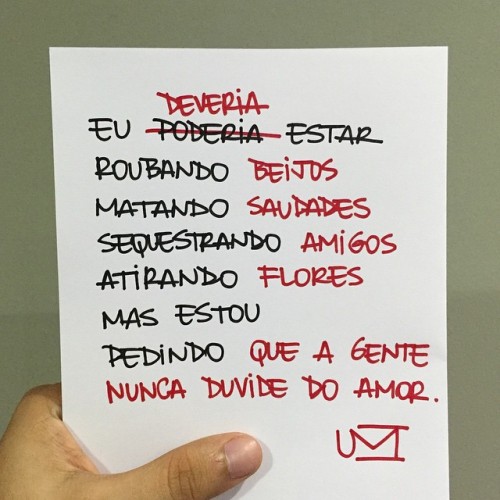 DEVERIA
EU PODERIA ESTAR
ROUBANDO BEIJOS
MATANDO SAUDADES
SEQUESTRANDO AMIGOS
ATIRANDO FLORES
MAS ESTOU
PEDINDO QUE A GENTE
NUNCA DUVIDE DO AMOR.
UM